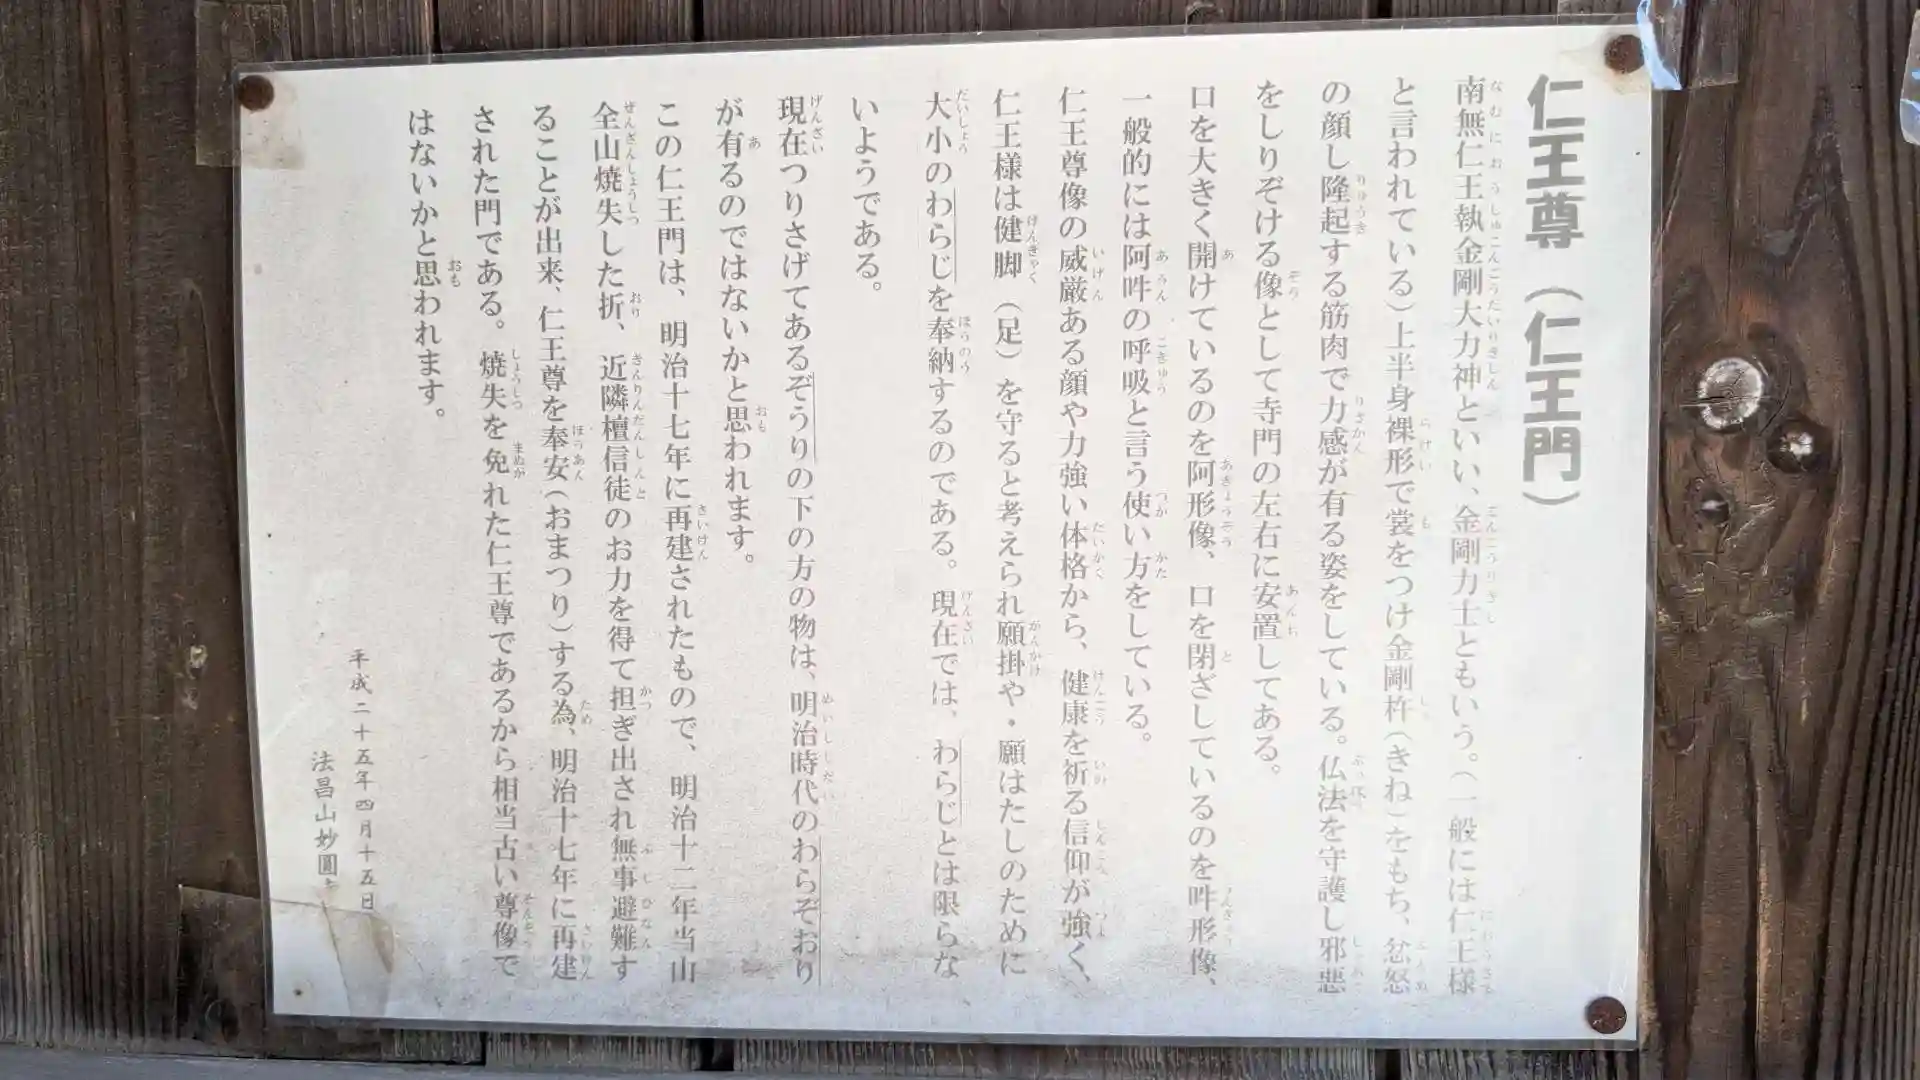 仁王尊（仁王門）
南無仁王執金剛大力神といい、金剛力士ともいう。（一般には仁王様
と言われている）上半身裸形で裳をつけ金剛杵（きね）をもち、忿怒
の顔し隆起する筋肉で力感が有る姿をしている。仏法を守護し邪悪
をしりぞける像として寺門の左右に安置してある。
口を大きく開けているのを阿形像、口を閉ざしているのを吽形像、
一般的には阿吽の呼吸と言う使い方をしている。
仁王尊像の威厳ある顔や力強い体格から、健康を祈る信仰が強く、
仁王様は健脚（足）を守ると考えられ願掛や・願はたしのために
大小のわらじを奉納するのである。現在では、わらじとは限らな
いようである。
現在つりさげてあるぞうりの下の方の物は、明治時代のわらぞおり
が有るのではないかと思われます。
この仁王門は、明治十七年に再建されたもので、明治十二年当山
全山焼失した折、近隣檀信徒のお力を得て担ぎ出され無事避難す
ることが出来、仁王尊を奉安（おまつり）する為、明治十七年に再建
された門である。焼失を免れた仁王尊であるから相当古い尊像で
はないかと思われます。
平成二十五年四月十五日
法昌山妙圓